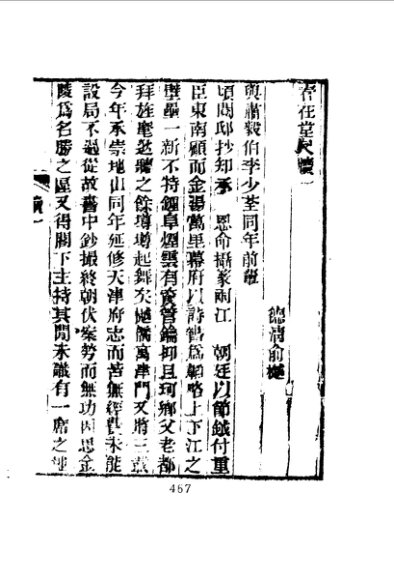 春在堂尺牘一
德清俞樾
與肅毅伯李少荃同年前輩
頃閱邸抄知承 恩命攝篆兩江 朝廷以節鉞付重
臣東南顧而金湯萬里幕府以詩書爲韜略上下江之
壁壘一新不特鍾阜煙雲有資管鑰抑且珂鄉父老都
拜旌麾逖聽之餘墫墫起舞矣樾僑寓津門又將三載
今年承崇地山同年延修天津府志而苦無經費未能
設局不過從故書中鈔撮終朝伏案勞而無功因思金
陵爲名勝之區又得閣下主持其間未識有一席之
牘一
467